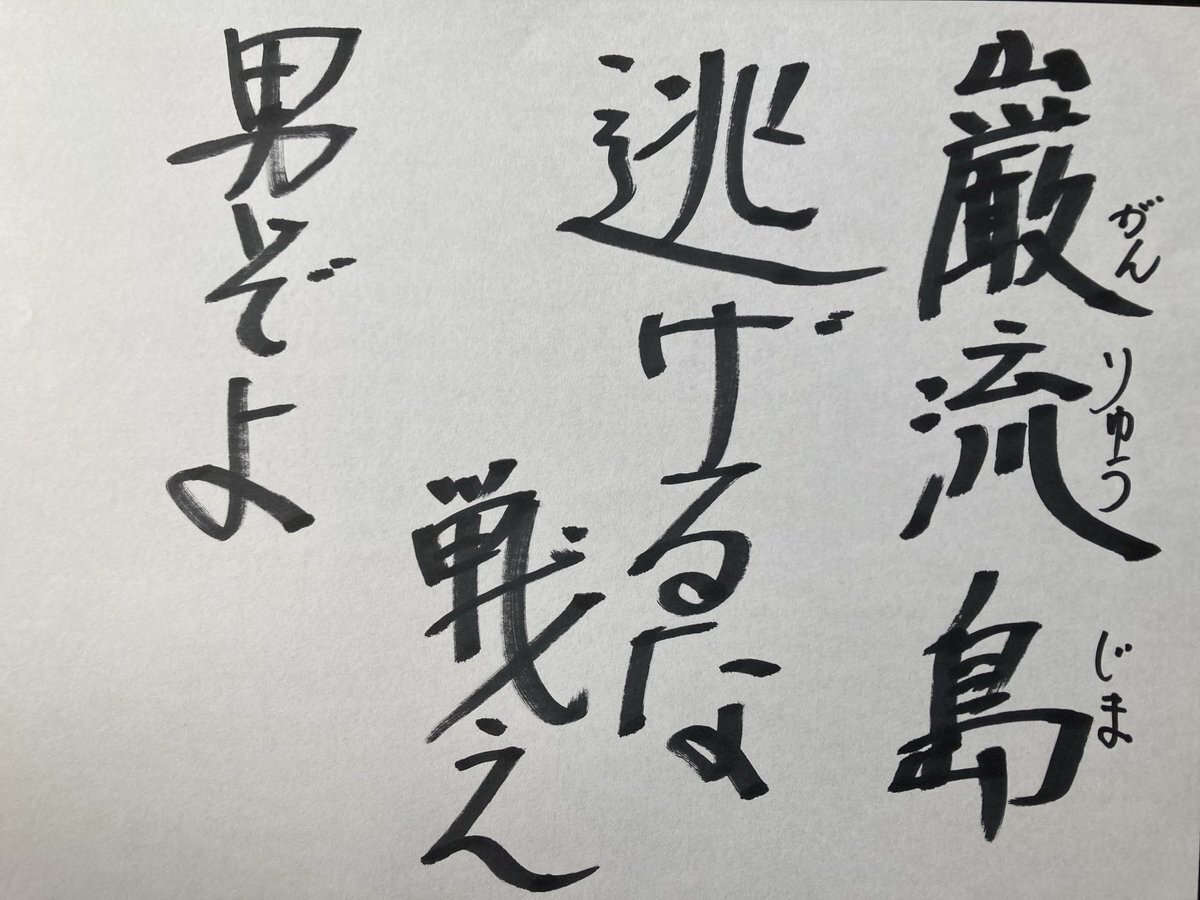 巌流島
がんりゅうじま
逃げるな
戦え
男ぞよ